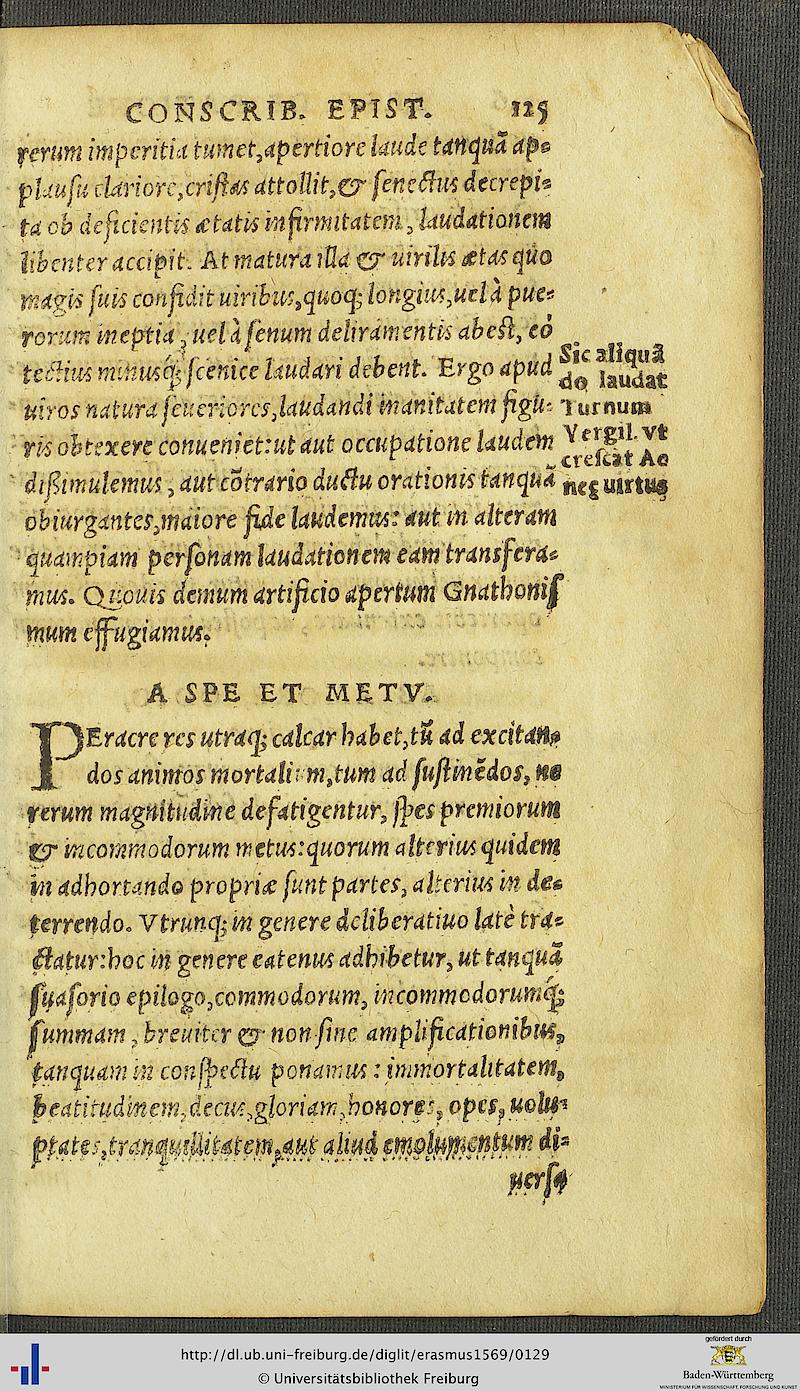 CONSCRIB. EPIST. 125
rerum imperitia tumet, apertiore laude tanquã ap=
plausu clariore, cristas attollit, & senectus decrepi=
ta ob deficientis ætatis infirmitatem, laudationem
libenter accipit. At matura illa & uirilis ætas quo
magis suis confidit uiribus, quoq; longius, uel à pue=
rorum ineptia, uel à senum deliramentis abest, eò
tectius minusq́; scenice laudari debent. Ergo apud
uiros natura seueriores, laudandi inanitatem figu=
ris obtexere conueniet: ut aut occupatione laudem
dißimulemus, aut cõtrario ductu orationis tanquã
obiurgantes, maiore fide laudemus: aut in alteram
quampiam personam laudationem eam transfera=
mus. Quouis demum artificio apertum Gnathonis
mum effugiamus.
Sic aliquã
do laudat
Turnum
Vergil. vt
crescat Ae
neę uirtus
A SPE ET METV.
PEracre res utraq; calcar habet, tũ ad excitan=
dos animos mortalium, tum ad sustinẽdos, ne
rerum magnitudine defatigentur, spes premiorum
& incommodorum metus: quorum alterius quidem
in adhortando propriæ sunt partes, alterius in de=
terrendo. Vtrunq; in genere deliberatiuo latè tra=
ctatur: hoc in genere eatenus adhibetur, ut tanquã
suasorio epilogo, commodorum, incommodorumq́;
summam, breuiter & non sine amplificationibus,
tanquam in conspectu ponamus: immortalitatem,
beatitudinem, decus, gloriam, honores, opes, uolu=
ptates, tranquillitatem, aut aliud emolumentum di=
uersa
http://dl.ub.uni-freiburg.de/diglit/erasmus1569/0129
© Universitätsbibliothek Freiburg
gefördert durch
Baden-Württemberg
MINISTERIUM FÜR WISSENSCHAFT, FORSCHUNG UND KUNST